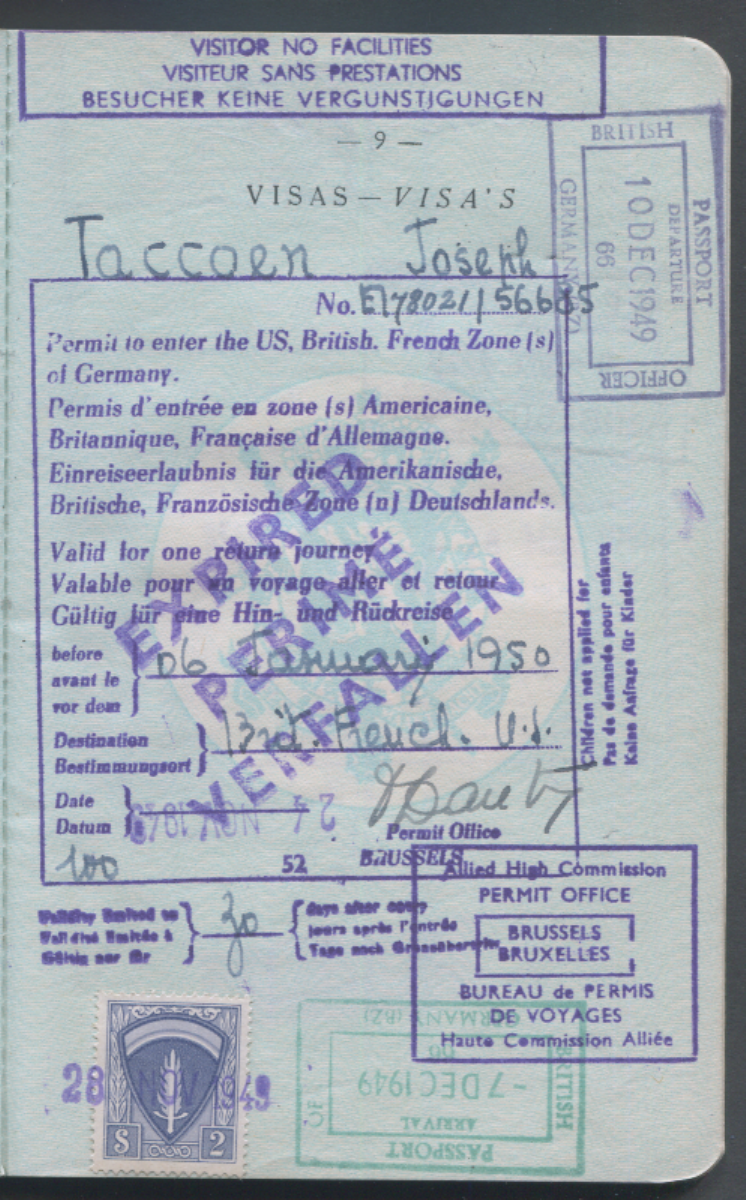 VISITOR NO FACILITIES
VISITEUR SANS PRESTATIONS
BESUCHER KEINE VERGUNSTIGUNGEN
— 9 —
VISAS — VISA'S
BRITISH
PASSPORT
DEPARTURE
10 DEC 1949
66
GERMANY (BZ)
OFFICER
Taccoen Joseph
No. E178021/56685
Permit to enter the US, British. French Zone (s)
of Germany.
Permis d'entrée en zone (s) Americaine,
Britannique, Française d'Allemagne.
Einreiseerlaubnis für die Amerikanische,
Britische, Französische Zone (n) Deutschlands.
EXPIRED
PERIMÉ
VERFALLEN
Valid for one return journey
Valable pour un voyage aller et retour
Gültig für eine Hin- und Rückreise
before
avant le
vor dem
06 January 1950
Children not applied for
Pas de demande pour enfants
Keine Anfrage für Kinder
Destination
Bestimmungsort
Brit. French. U.S.
Date
Datum
24 NOV 1949
Permit Office
BRUSSELS
100
52
Validity limited to
Validité limitée à
Gültig nur für
30
days after entry
jours après l'entrée
Tage nach
Allied High Commission
PERMIT OFFICE
BRUSSELS
BRUXELLES
BUREAU de PERMIS
DE VOYAGES
Haute Commission Alliée
28 NOV 1949
$ 2
GERMANY (BZ)
66
BRITISH
- 7 DEC 1949
ARRIVAL
PASSPORT